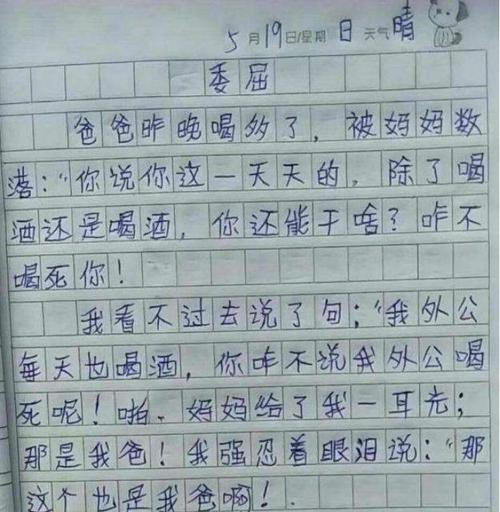 5月19日/星期日 天气晴
委屈
爸爸昨晚喝多了，被妈妈数
落："你说你这一天天的，除了喝
酒还是喝酒，你还能干啥？咋不
喝死你！
我看不过去说了句；"我外公
每天也喝酒，你咋不说我外公喝
死呢！啪、妈妈给了我一耳光；
那是我爸！我强忍着眼泪说："那
这个也是我爸啊！.